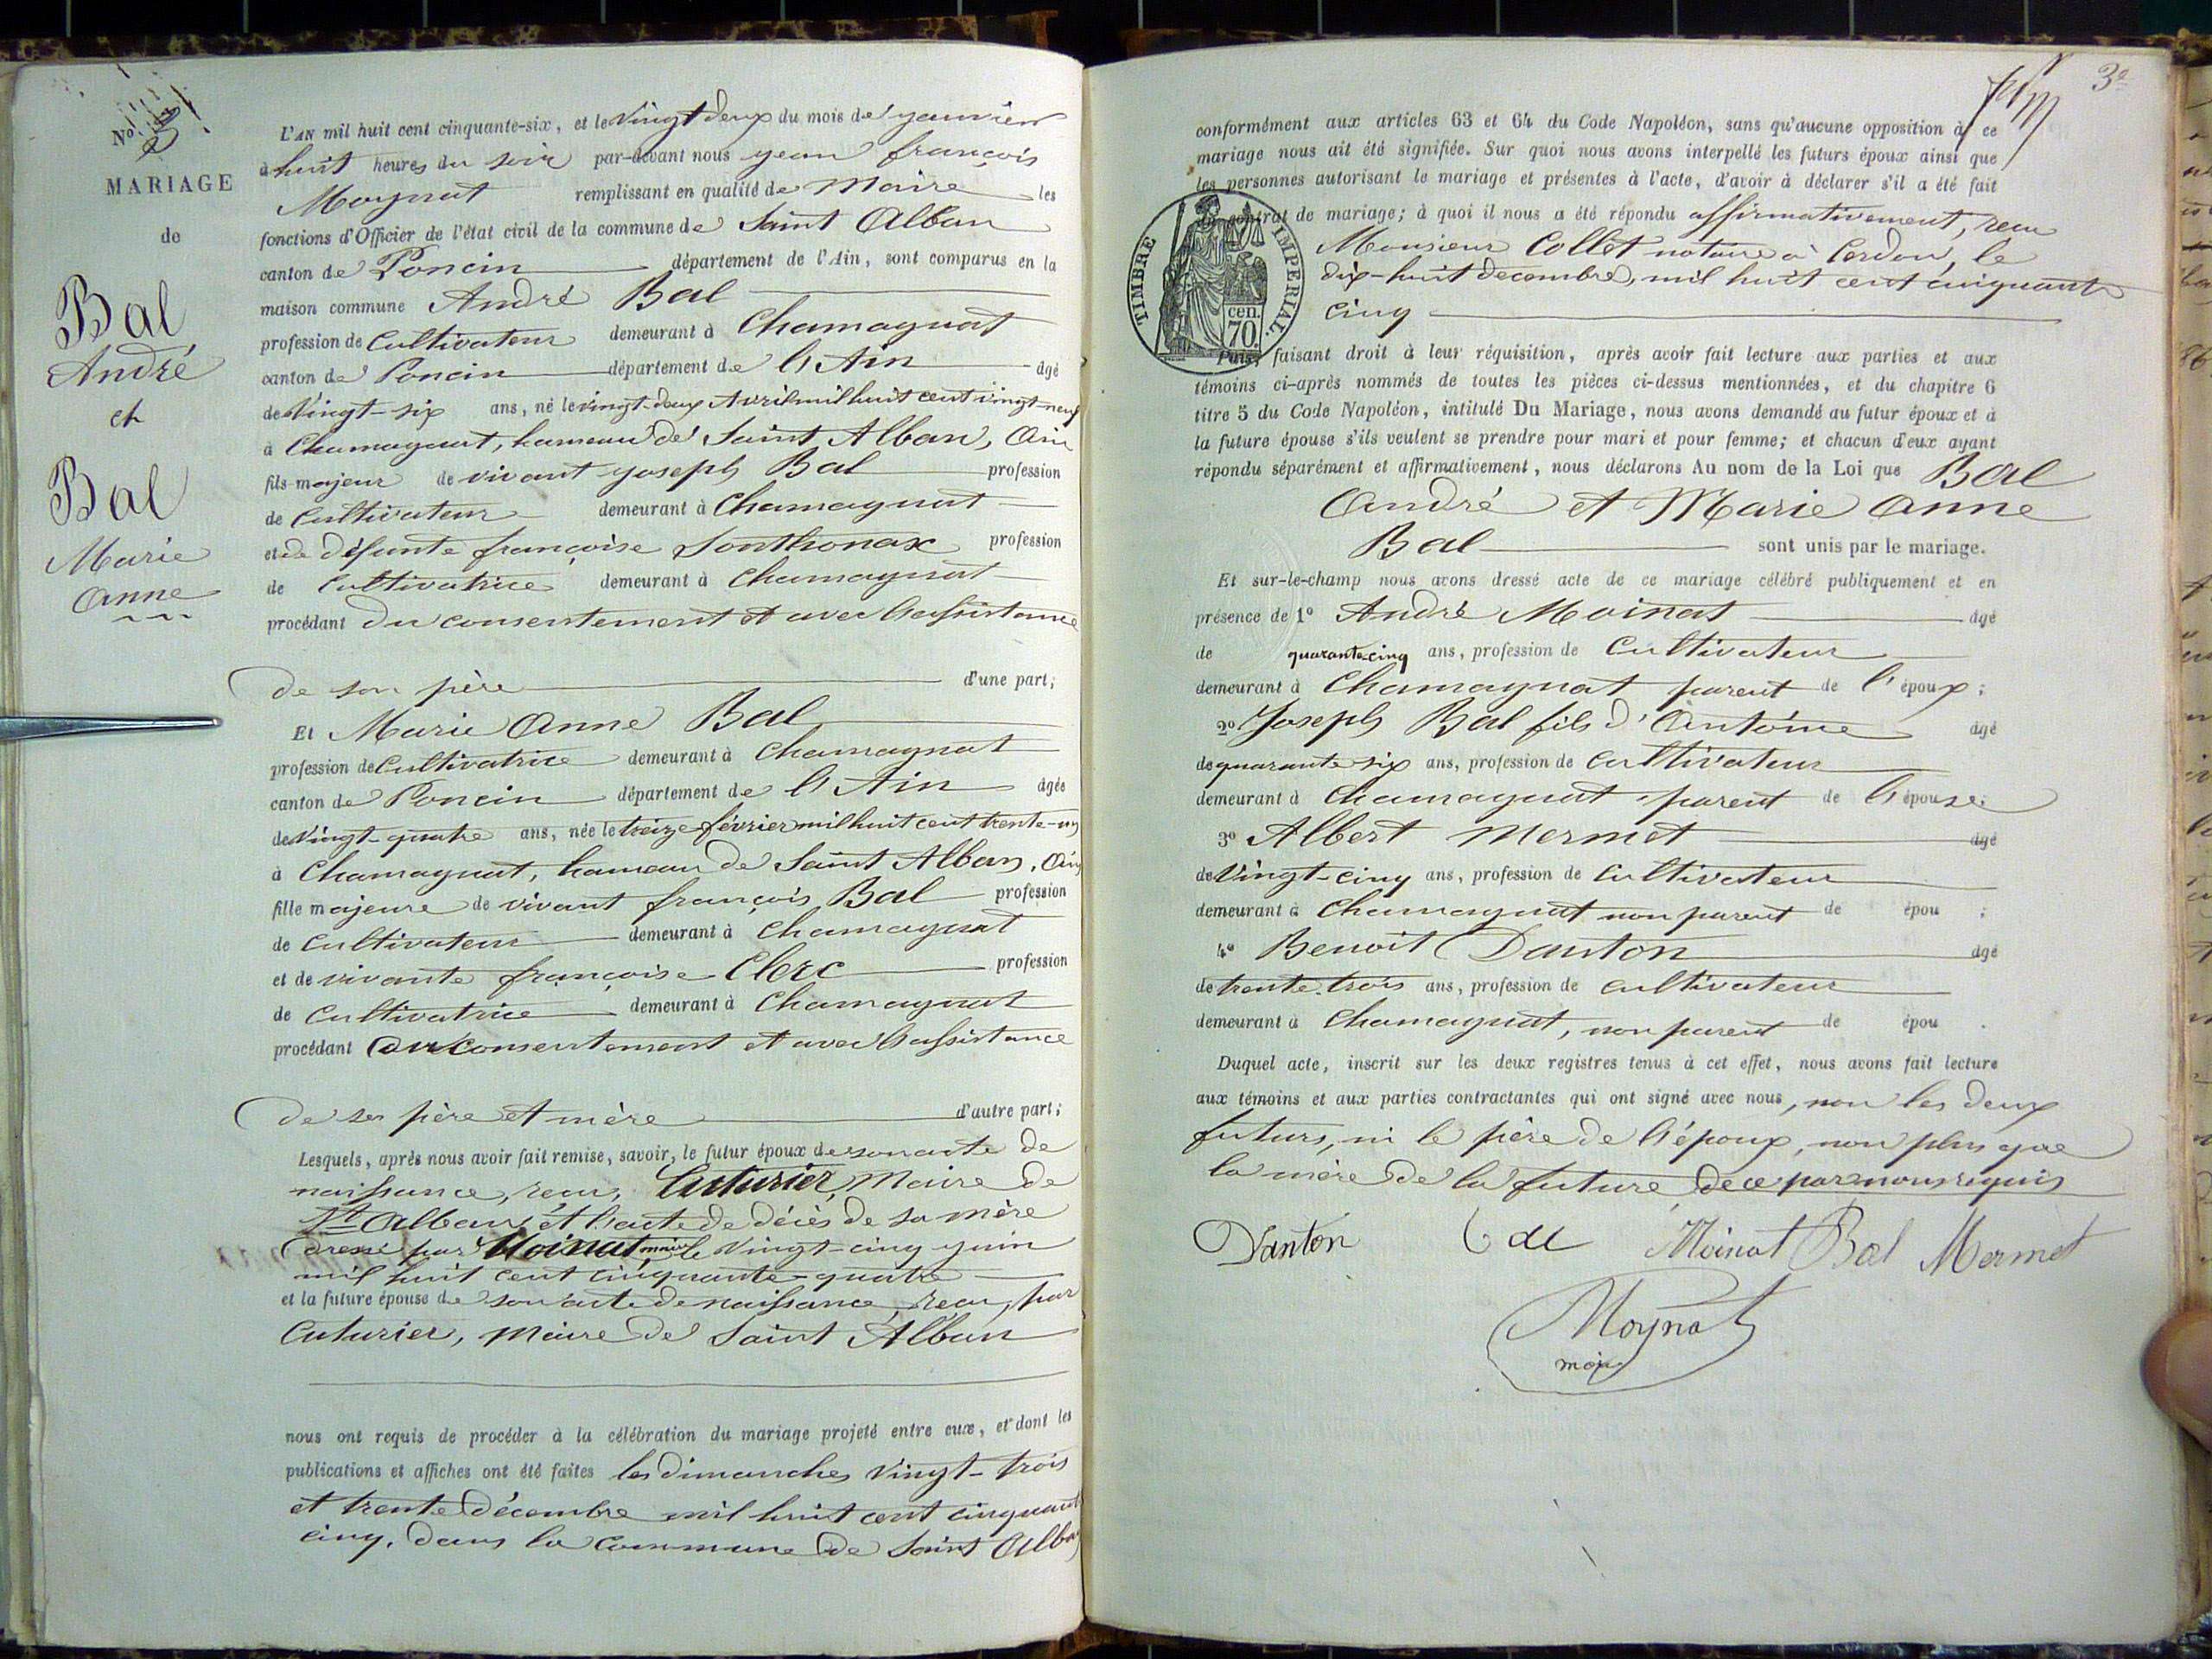 No 3
MARIAGE
de
Bal
André
et
Bal
Marie
Anne
L'AN mil huit cent cinquante-six, et le vingt deux du mois de yanvier
à huit heures du soir par-devant nous yean françois
Moynat remplissant en qualité de Maire les
fonctions d'Officier de l'état civil de la commune de Saint Alban
canton de Poncin département de l'Ain, sont comparus en la
maison commune André Bal
profession de Cultivateur demeurant à Chamagnat
canton de Poncin département de l'Ain âgé
de vingt-six ans, né le vingt-deux Avril mil huit cent vingt-neuf
à Chamagnat, hameau de Saint Alban, Ain
fils majeur de vivant yoseph Bal profession
de Cultivateur demeurant à Chamagnat
et de défunte françoise Sonthonax profession
de Cultivatrice demeurant à Chamagnat
procédant du consentement et avec l'assistance
de son père d'une part;
Et Marie Anne Bal
profession de Cultivatrice demeurant à Chamagnat
canton de Poncin département de l'Ain âgée
de vingt-quatre ans, née le treize février mil huit cent trente-un
à Chamagnat, hameau de Saint Alban, Ain
fille majeure de vivant françois Bal profession
de Cultivateur demeurant à Chamagnat
et de vivante françoise Clerc profession
de Cultivatrice demeurant à Chamagnat
procédant du consentement et avec l'assistance
de ses père et mère d'autre part;
Lesquels, après nous avoir fait remise, savoir, le futur époux de son acte de
naissance, reçu, Cuturier, Maire de
St Alban et l'acte de décès de sa mère
dressé par Moinat, maire le vingt-cinq yuin
mil huit cent cinquante-quatre
et la future épouse de son acte de naissance, reçu, par
Cuturier, Maire de Saint Alban
nous ont requis de procéder à la célébration du mariage projeté entre eux, et dont les
publications et affiches ont été faites les dimanches vingt-trois
et trente décembre mil huit cent cinquante
cinq, dans la commune de Saint Alban
3e
conformément aux articles 63 et 64 du Code Napoléon, sans qu'aucune opposition à ce
mariage nous ait été signifiée. Sur quoi nous avons interpellé les futurs époux ainsi que
les personnes autorisant le mariage et présentes à l'acte, d'avoir à déclarer s'il a été fait
un contrat de mariage; à quoi il nous a été répondu affirmativement, reçu
Monsieur Collet notaire à Cerdon, le
dix-huit decembre, mil huit cent cinquante
cinq
TIMBRE IMPERIAL.
cen.
70.
Puis, faisant droit à leur réquisition, après avoir fait lecture aux parties et aux
témoins ci-après nommés de toutes les pièces ci-dessus mentionnées, et du chapitre 6
titre 5 du Code Napoléon, intitulé Du Mariage, nous avons demandé au futur époux et à
la future épouse s'ils veulent se prendre pour mari et pour femme; et chacun d'eux ayant
répondu séparément et affirmativement, nous déclarons Au nom de la Loi que Bal
André et Marie Anne
Bal sont unis par le mariage.
Et sur-le-champ nous avons dressé acte de ce mariage célébré publiquement et en
présence de 1o André Moinat âgé
de quarante-cinq ans, profession de Cultivateur
demeurant à Chamagnat parent de l'époux;
2o Joseph Bal fils d'Antoine âgé
de quarante-six ans, profession de Cultivateur
demeurant à Chamagnat parent de l'épouse;
3o Albert Mermet âgé
de vingt-cinq ans, profession de Cultivateur
demeurant à Chamagnat non parent de épou ;
4o Benoit Danton âgé
de trente-trois ans, profession de Cultivateur
demeurant à Chamagnat, non parent de épou .
Duquel acte, inscrit sur les deux registres tenus à cet effet, nous avons fait lecture
aux témoins et aux parties contractantes qui ont signé avec nous, non les deux
futurs, ni le père de l'époux, non plus que
la mère de la future de ce par nous requis
Danton Moinat Bal Mermet
Moynat